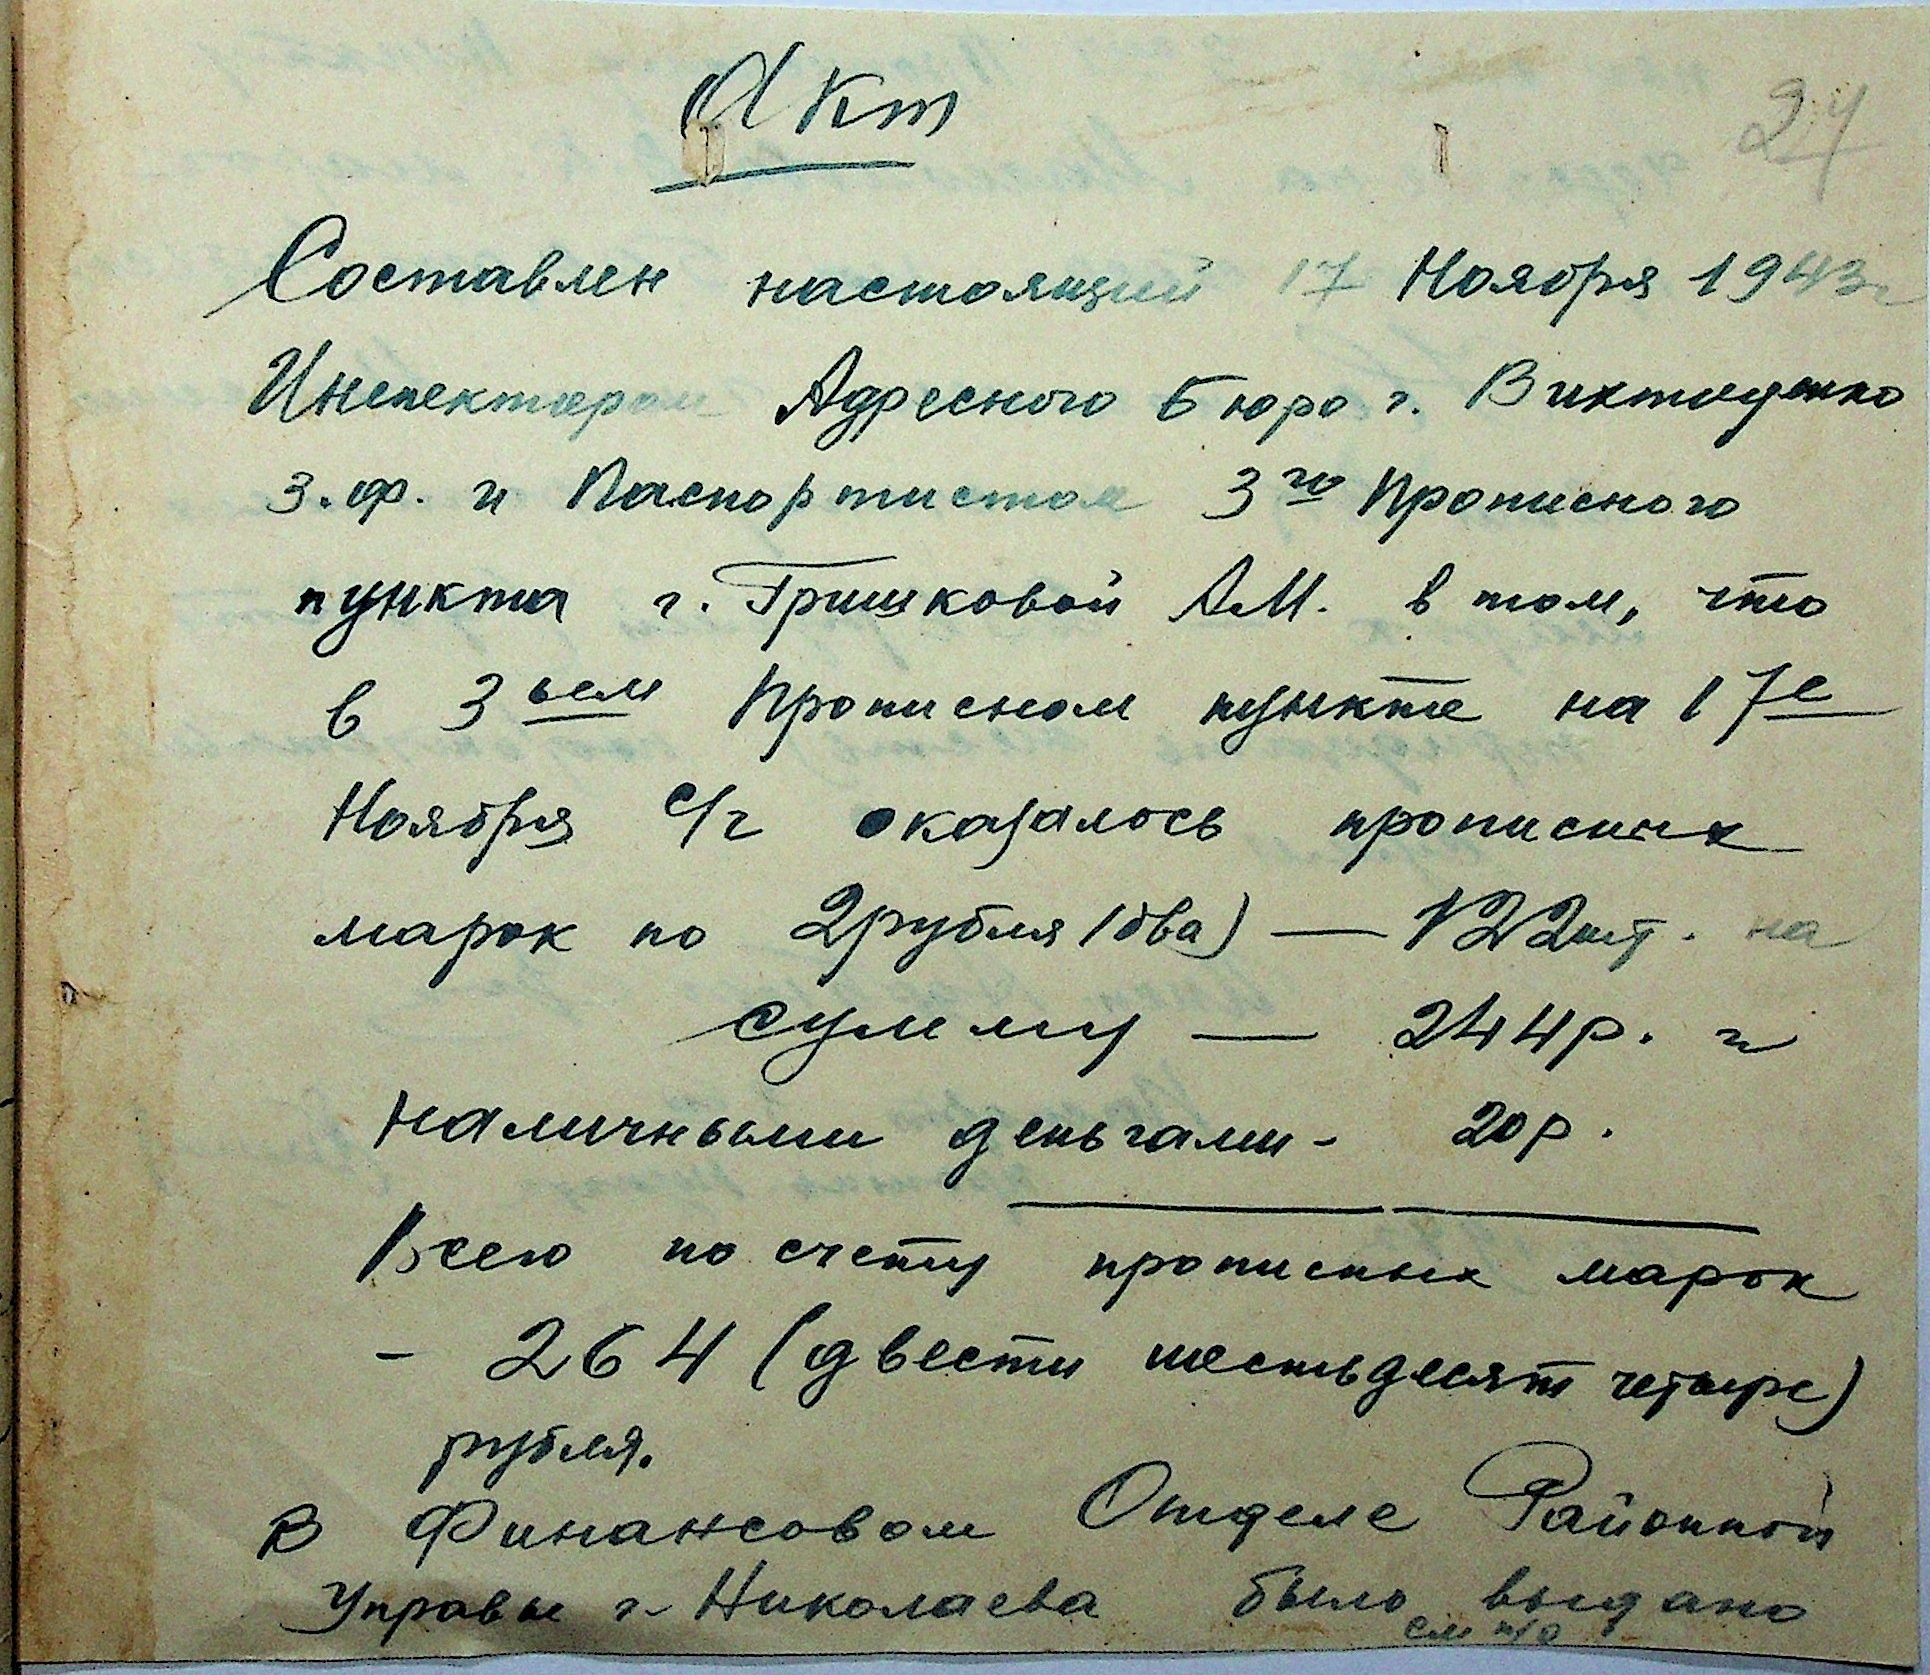 Акт
24
Составлен настоящий 17 Ноября 1943г
Инспектором Адресного Бюро г.
З.Ф. и Паспортистом 3го Прописного
пункта г. Гришковой А.М. в том, что
в 3ьем Прописном пункте на 17е
Ноября с/г оказалось прописных
марок по 2 рубля (два) — 122 шт. на
сумму — 244 р. и
наличными деньгами - 20 р.
Всего по счету прописных марок
- 264 (двести шестьдесят четыре)
рубля.
В Финансовом Отделе Районной
Управы г. Николаева было выдано
см н/о